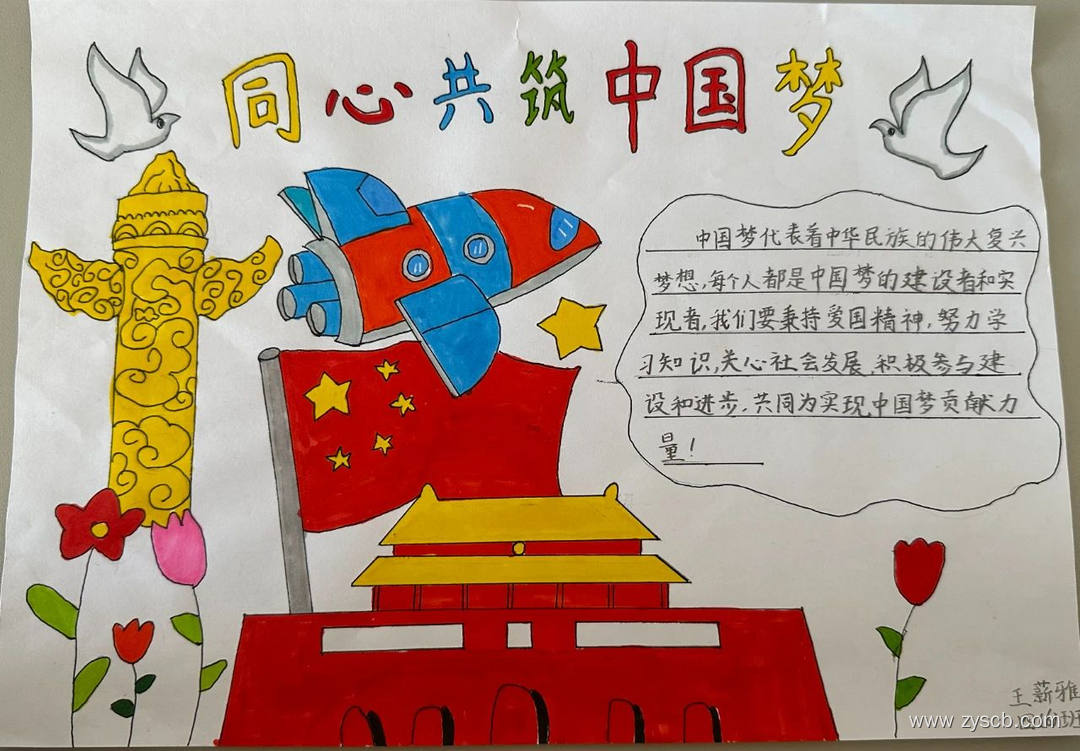 同心共筑中国梦
中国梦代表着中华民族的伟大复兴
梦想,每个人都是中国梦的建设者和实
现者,我们要秉持爱国精神,努力学
习知识,关心社会发展,积极参与建
设和进步,共同为实现中国梦贡献力
量!
王薪雅
www.zyscb.com